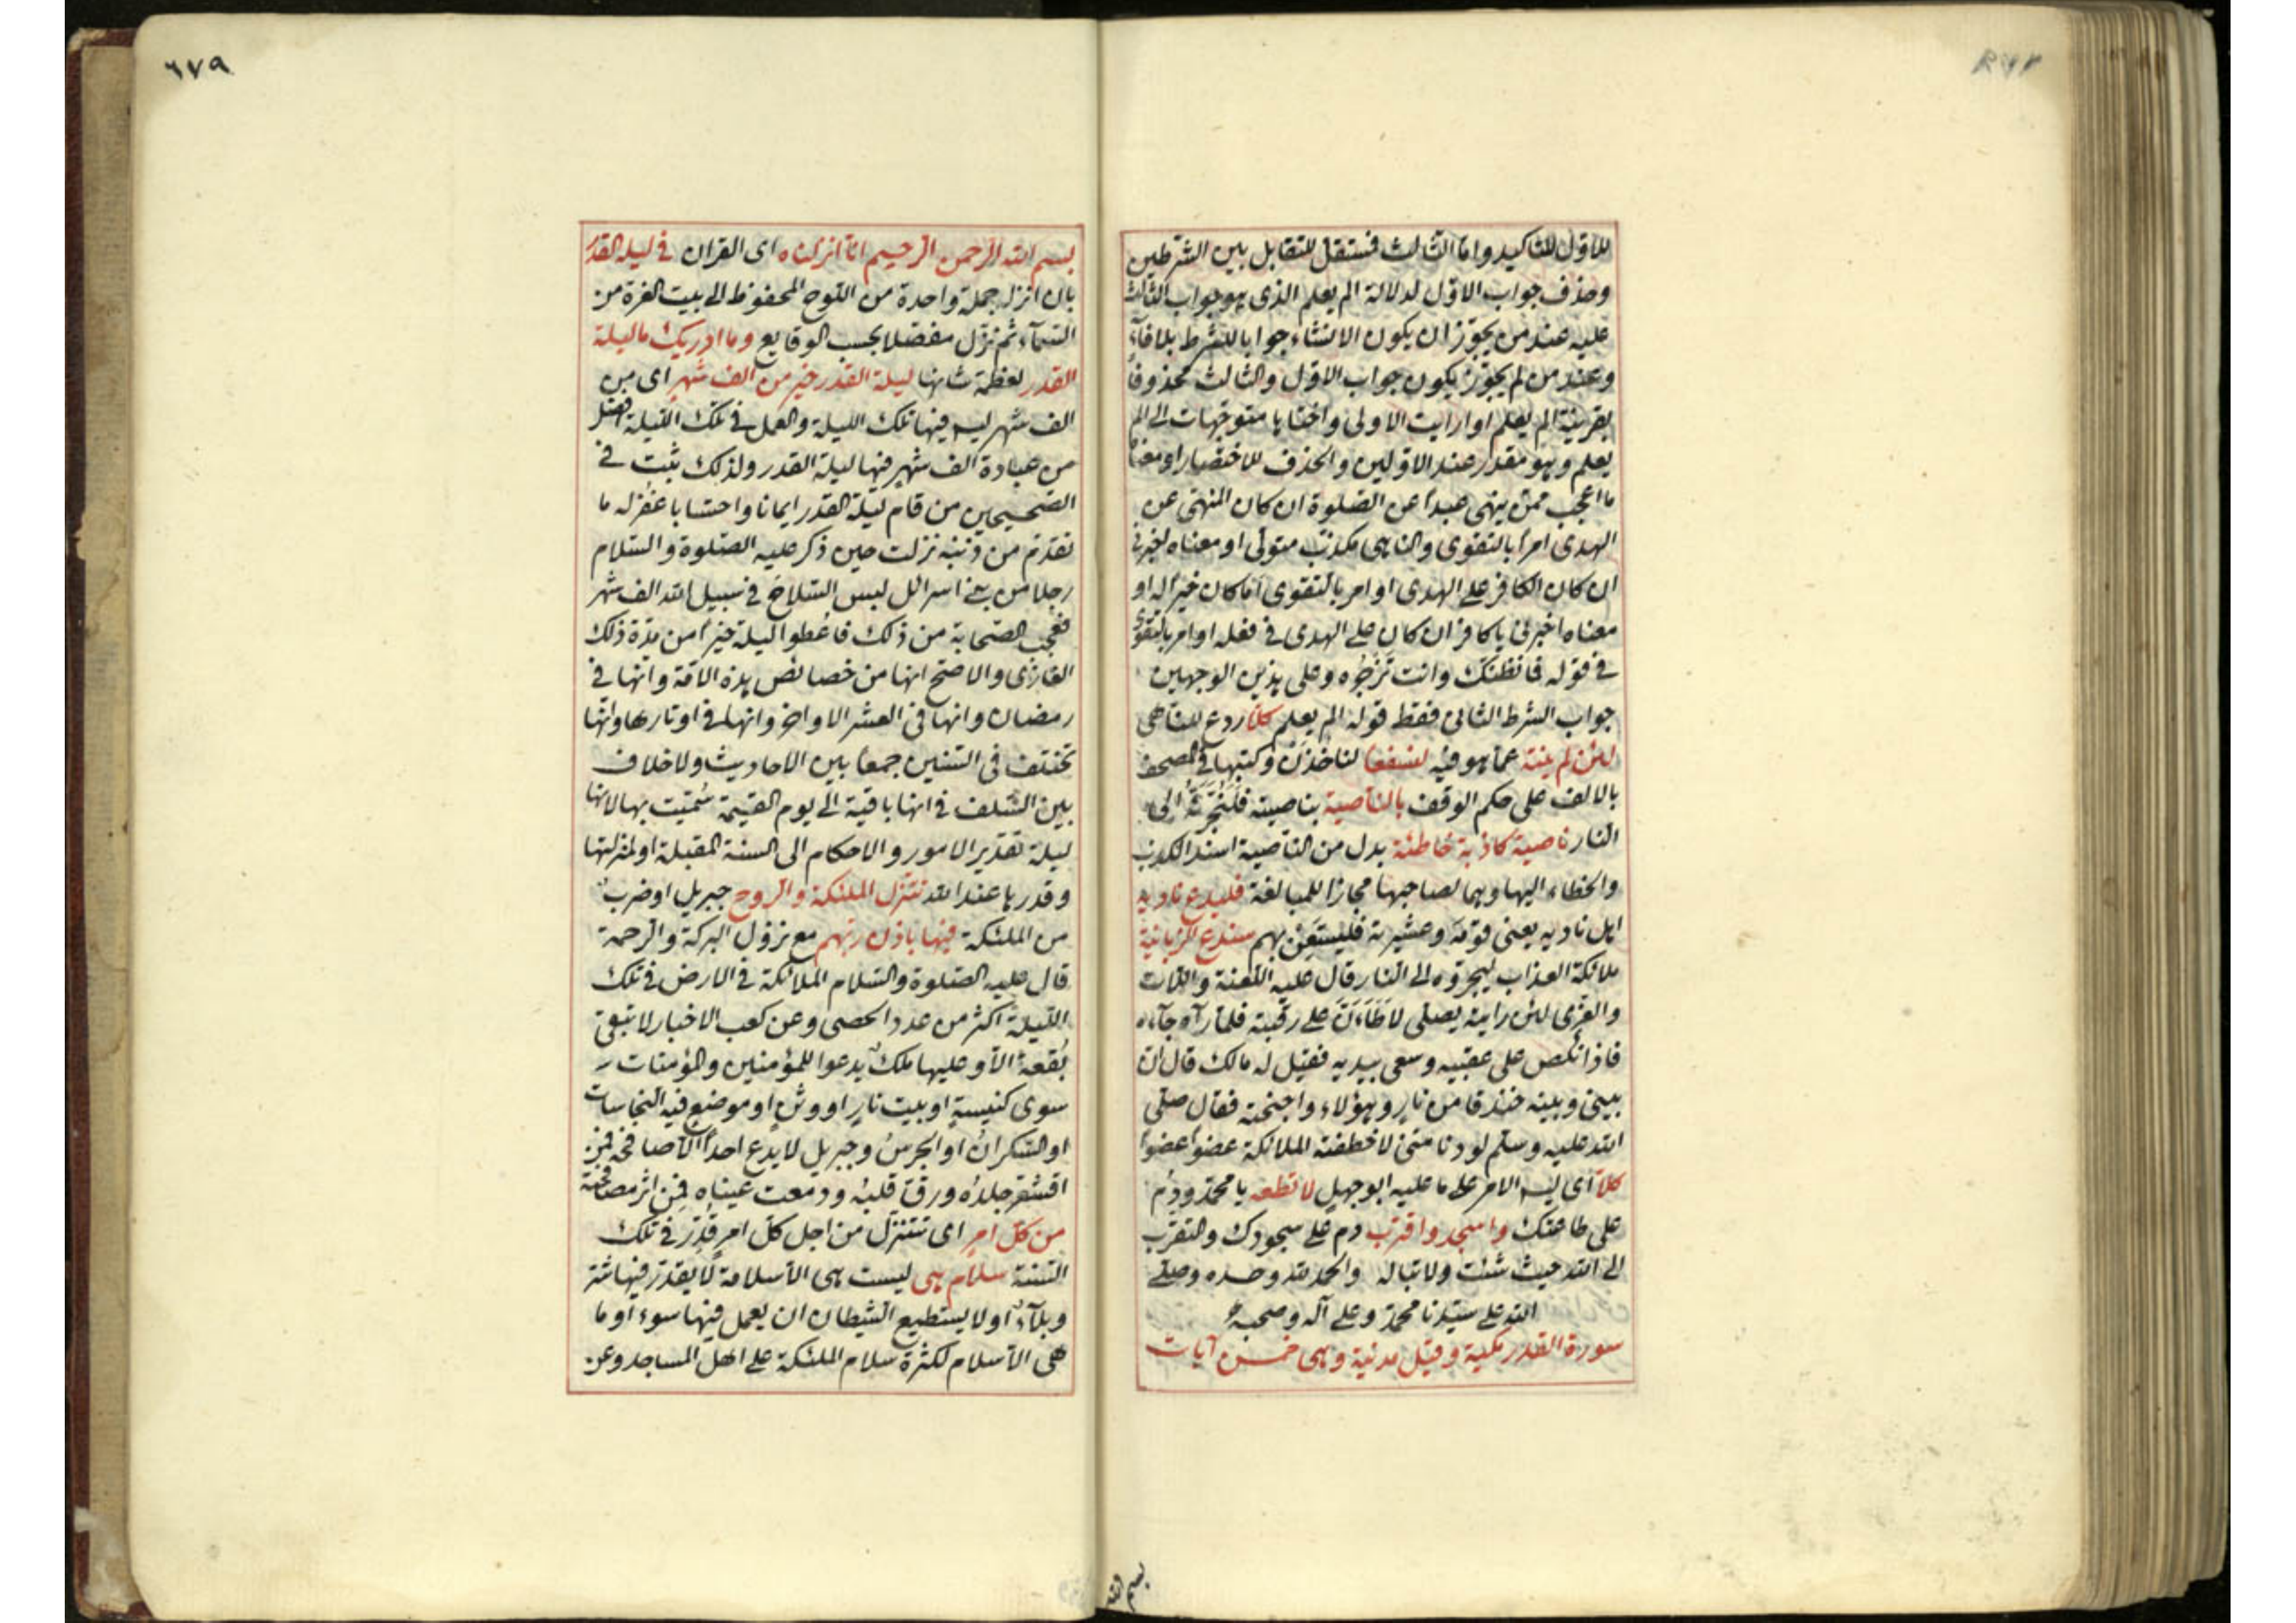 للاوّل للتاكيد واما الثالث فمستقل للتقابل بين الشرطين
وحذف جواب الاوّل لدلالة الم يعلم الذى هو جواب الثالث
عليه عند من يجوّز ان يكون الانشاء جوابا للشرط بلا فاء
وعند من لم يجوّز يكون جواب الاوّل والثالث محذوفا
بقرينة الم يعلم او ارايت الاولى واختاها متوجّهات الى الم
يعلم وهو مقدر عند الاوّلين والحذف للاختصار او معناه
ما اعجب ممّن ينهى عبداً عن الصّلوة ان كان المنهى عن
الهدى امراً بالتقوى والناهى مكذب متولى او معناه اخبرنى
ان كان الكافر على الهدى او امر بالتقوى اما كان خيراً له او
معناه اخبرنى يا كافر ان كان على الهدى فى فعله او امر بالتقوى
فى قوله فانظنّك وانت تَزجُره وعلى هذين الوجهين
جواب الشرط الثانى فقط قوله الم يعلم كلّا ردع للناهى
لئن لم ينته عما هو فيه لنسفعا لناخذنّ وكتبها فى المصحف
بالالف على حكم الوقف بالنّاصية بناصيته فلنجرّنّه الى
النار ناصية كاذبة خاطئة بدل من الناصية اسند الكذب
والخطاء اليها وهما لصاحبها مجازا للمبالغة فليدع ناديه
اهل ناديه يعنى قومَه وعشيرته فليستعن بهم سندع الزبانية
ملائكة العذاب ليجرّوه الى النار قال عليه اللعنة واللات
والعزى لئن رايته يصلى لاطَاَنَّ على رقبته فلمّا رآه جآءه
فاذا نكص على عقبيه وسعى بيديه فقيل له مالك قال انّ
بينى وبينه خندقا من نارٍ وهؤلاء واجنحة فقال صلى
الله عليه وسلم لو دنا منى لاخطفته الملائكة عضواً عضواً
كلّا اى ليس الامر على ما عليه ابو جهل لا تطعه يا محمّد ودُم
على طاعتك واسجد واقترب دم على سجودك والتقرّب
الى الله حيث شئت ولا تباله والحمد لله وحده وصلى
الله على سيّدنا محمّد وعلى آله وصحبه
سورة القدر مكية وقيل مدنية وهى خمس آيات
بسم الله
٦٧٩
بسم الله الرحمن الرحيم انّا انزلناه اى القران فى ليلة القدر
بان انزل جملة واحدة من اللوح المحفوظ الى بيت العزة من
السّمآء ثم نزّل مفصّلا بحسب الوقايع وما ادريك ما ليلة
القدر لعظمة شانها ليلة القدر خير من الف شهر اى من
الف شهر ليس فيها تلك الليلة والعمل فى تلك الليلة افضل
من عبادة الف شهر فيها ليلة القدر ولذلك ثبت فى
الصّحيحين من قام ليلة القدر ايمانا واحتسابا غُفر له ما
تقدّم من ذنبه نزلت حين ذكر عليه الصّلوة والسّلام
رجلا من بنى اسرائل لبس السّلاح فى سبيل الله الف شهر
فعجب الصّحابة من ذلك فاعُطوا ليلة خيراً من مدّة ذلك
الغازى والاصحّ انها من خصائص هذه الامّة وانّها فى
رمضان وانها فى العشر الاواخر وانها فى اوتارها وانها
تختلف فى السّنين جمعا بين الاحاديث ولا خلاف
بين السّلف فى انها باقية الى يوم القيمة سُميّت بها لانها
ليلة تقدير الامور والاحكام الى السنة المقبلة او لمنزلتها
وقدرها عند الله تنزل الملئكة والروح جبريل او ضرب
من الملئكة فيها باذن ربّهم مع نزول البركة والرحمة
قال عليه الصّلوة والسّلام الملائكة فى الارض فى تلك
الليلةَ اكثر من عدد الحصى وعن كعب الاخبار لا تبقى
بُقعة الا وعليها ملك يدعوا للمؤمنين والمؤمنات
سوى كنيسةٍ او بيت نارٍ او وثنٍ او موضع فيه النجاسات
او السّكرانُ او الجرسُ وجبريل لا يدع احداً الا صافحه فمن
اقشعر جلدُه ورقّ قلبُه ودمعت عيناه فمن اثر مصافحته
من كلّ امر اى تتنزّل من اجل كلّ امرٍ قُدِّر فى تلك
السّنة سلام هى ليست هى الا سلامة لا يقدّر فيها شر
وبلآء او لا يستطيع الشيطان ان يعمل فيها سوء او ما
هى الا سلام لكثرة سلام الملئكة على اهل المساجد وعن